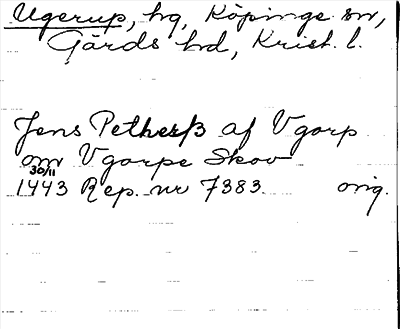 Ugerup, hg, Köpinge sn,
Gärds hd, Krist. l.
Jens Petherß af Vgorp
om Vgorpe Skov
30/11
1443 Rep. nr 7383 orig.